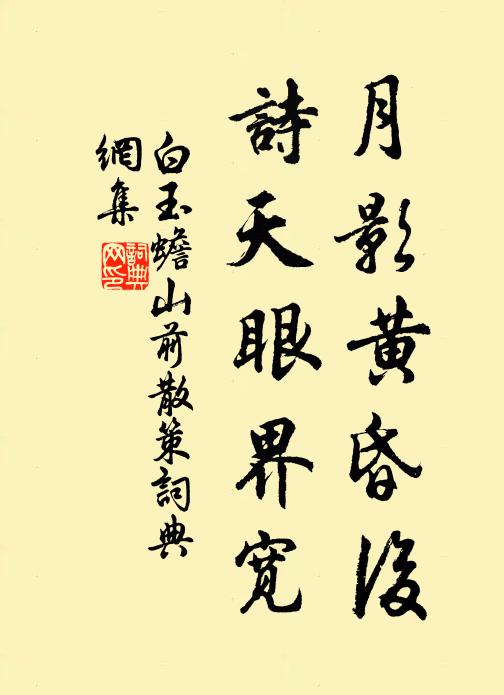 月影黄昏後
詩天眼界寬
白玉蟾山前散策詞典
網集
詞典
网印